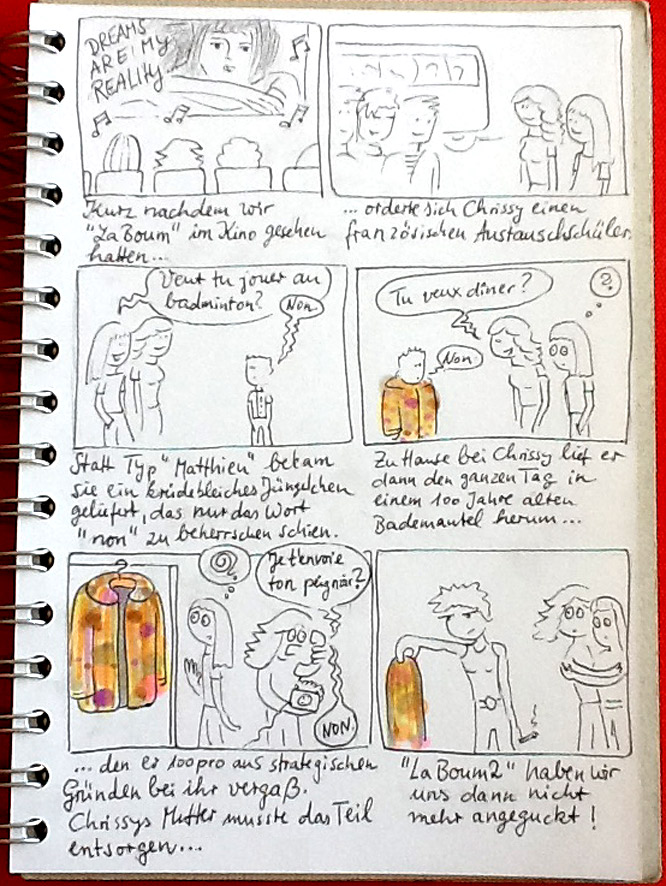 DREAMS
ARE MY
REALITY
Kurz nachdem wir
"La Boum" im Kino gesehen
hatten...
... orderte sich Chrissy einen
französischen Austauschschüler.
Veut tu jouer au
badminton?
Non.
Statt Typ "Matthieu" bekam
sie ein kreidebleiches Jüngelchen
geliefert, das nur das Wort
"non" zu beherrschen schien.
?
Tu veux dîner?
Non.
Zu Hause bei Chrissy lief er
dann den ganzen Tag in
einem 100 Jahre alten
Bademantel herum...
Je t'envoie
ton peignoir?
NON.
... den er 100pro aus strategischen
Gründen bei ihr vergaß.
Chrissys Mutter musste das Teil
entsorgen...
"La Boum2" haben wir
uns dann nicht
mehr angeguckt!